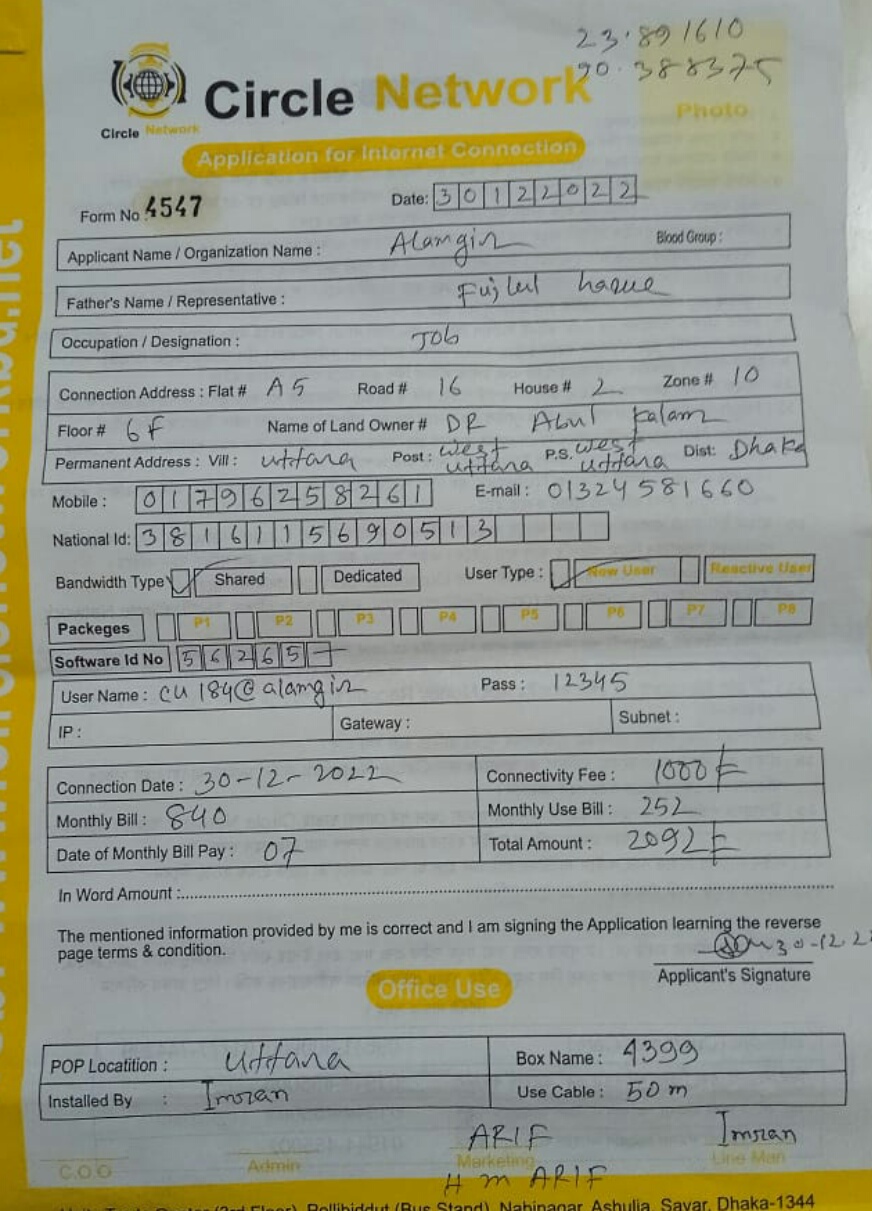 23.891610
90.388375
Circle Network
Circle Network
Photo
Application for Internet Connection
Form No 4547 Date: 30122022
Applicant Name / Organization Name : Alamgir Blood Group :
Father's Name / Representative : Fujlul haque
Occupation / Designation : Job
Connection Address : Flat # A5 Road # 16 House # 2 Zone # 10
Floor # 6F Name of Land Owner # DR Abul kalam
Permanent Address : Vill : uttara Post : west uttara P.S. west uttara Dist: Dhaka
Mobile : 01796258261 E-mail : 01324581660
National Id: 3816115690513
Bandwidth Type Shared Dedicated User Type : New User Reactive User
Packeges P1 P2 P3 P4 P5 P6 P7 P8
Software Id No 56265
User Name : CU184@alamgir Pass : 12345
IP : Gateway : Subnet :
Connection Date : 30-12-2022 Connectivity Fee : 1000
Monthly Bill : 840 Monthly Use Bill : 252
Date of Monthly Bill Pay : 07 Total Amount : 2092
In Word Amount :
The mentioned information provided by me is correct and I am signing the Application learning the reverse
page terms & condition.
30-12.22
Applicant's Signature
Office Use
POP Locatition : Uttara Box Name : 4399
Installed By : Imran Use Cable : 50 m
ARIF Imran
C.O.O Admin Marketing Line Man
H M ARIF
(Bus Stand), Nabinagar, Ashulia, Savar, Dhaka-1344